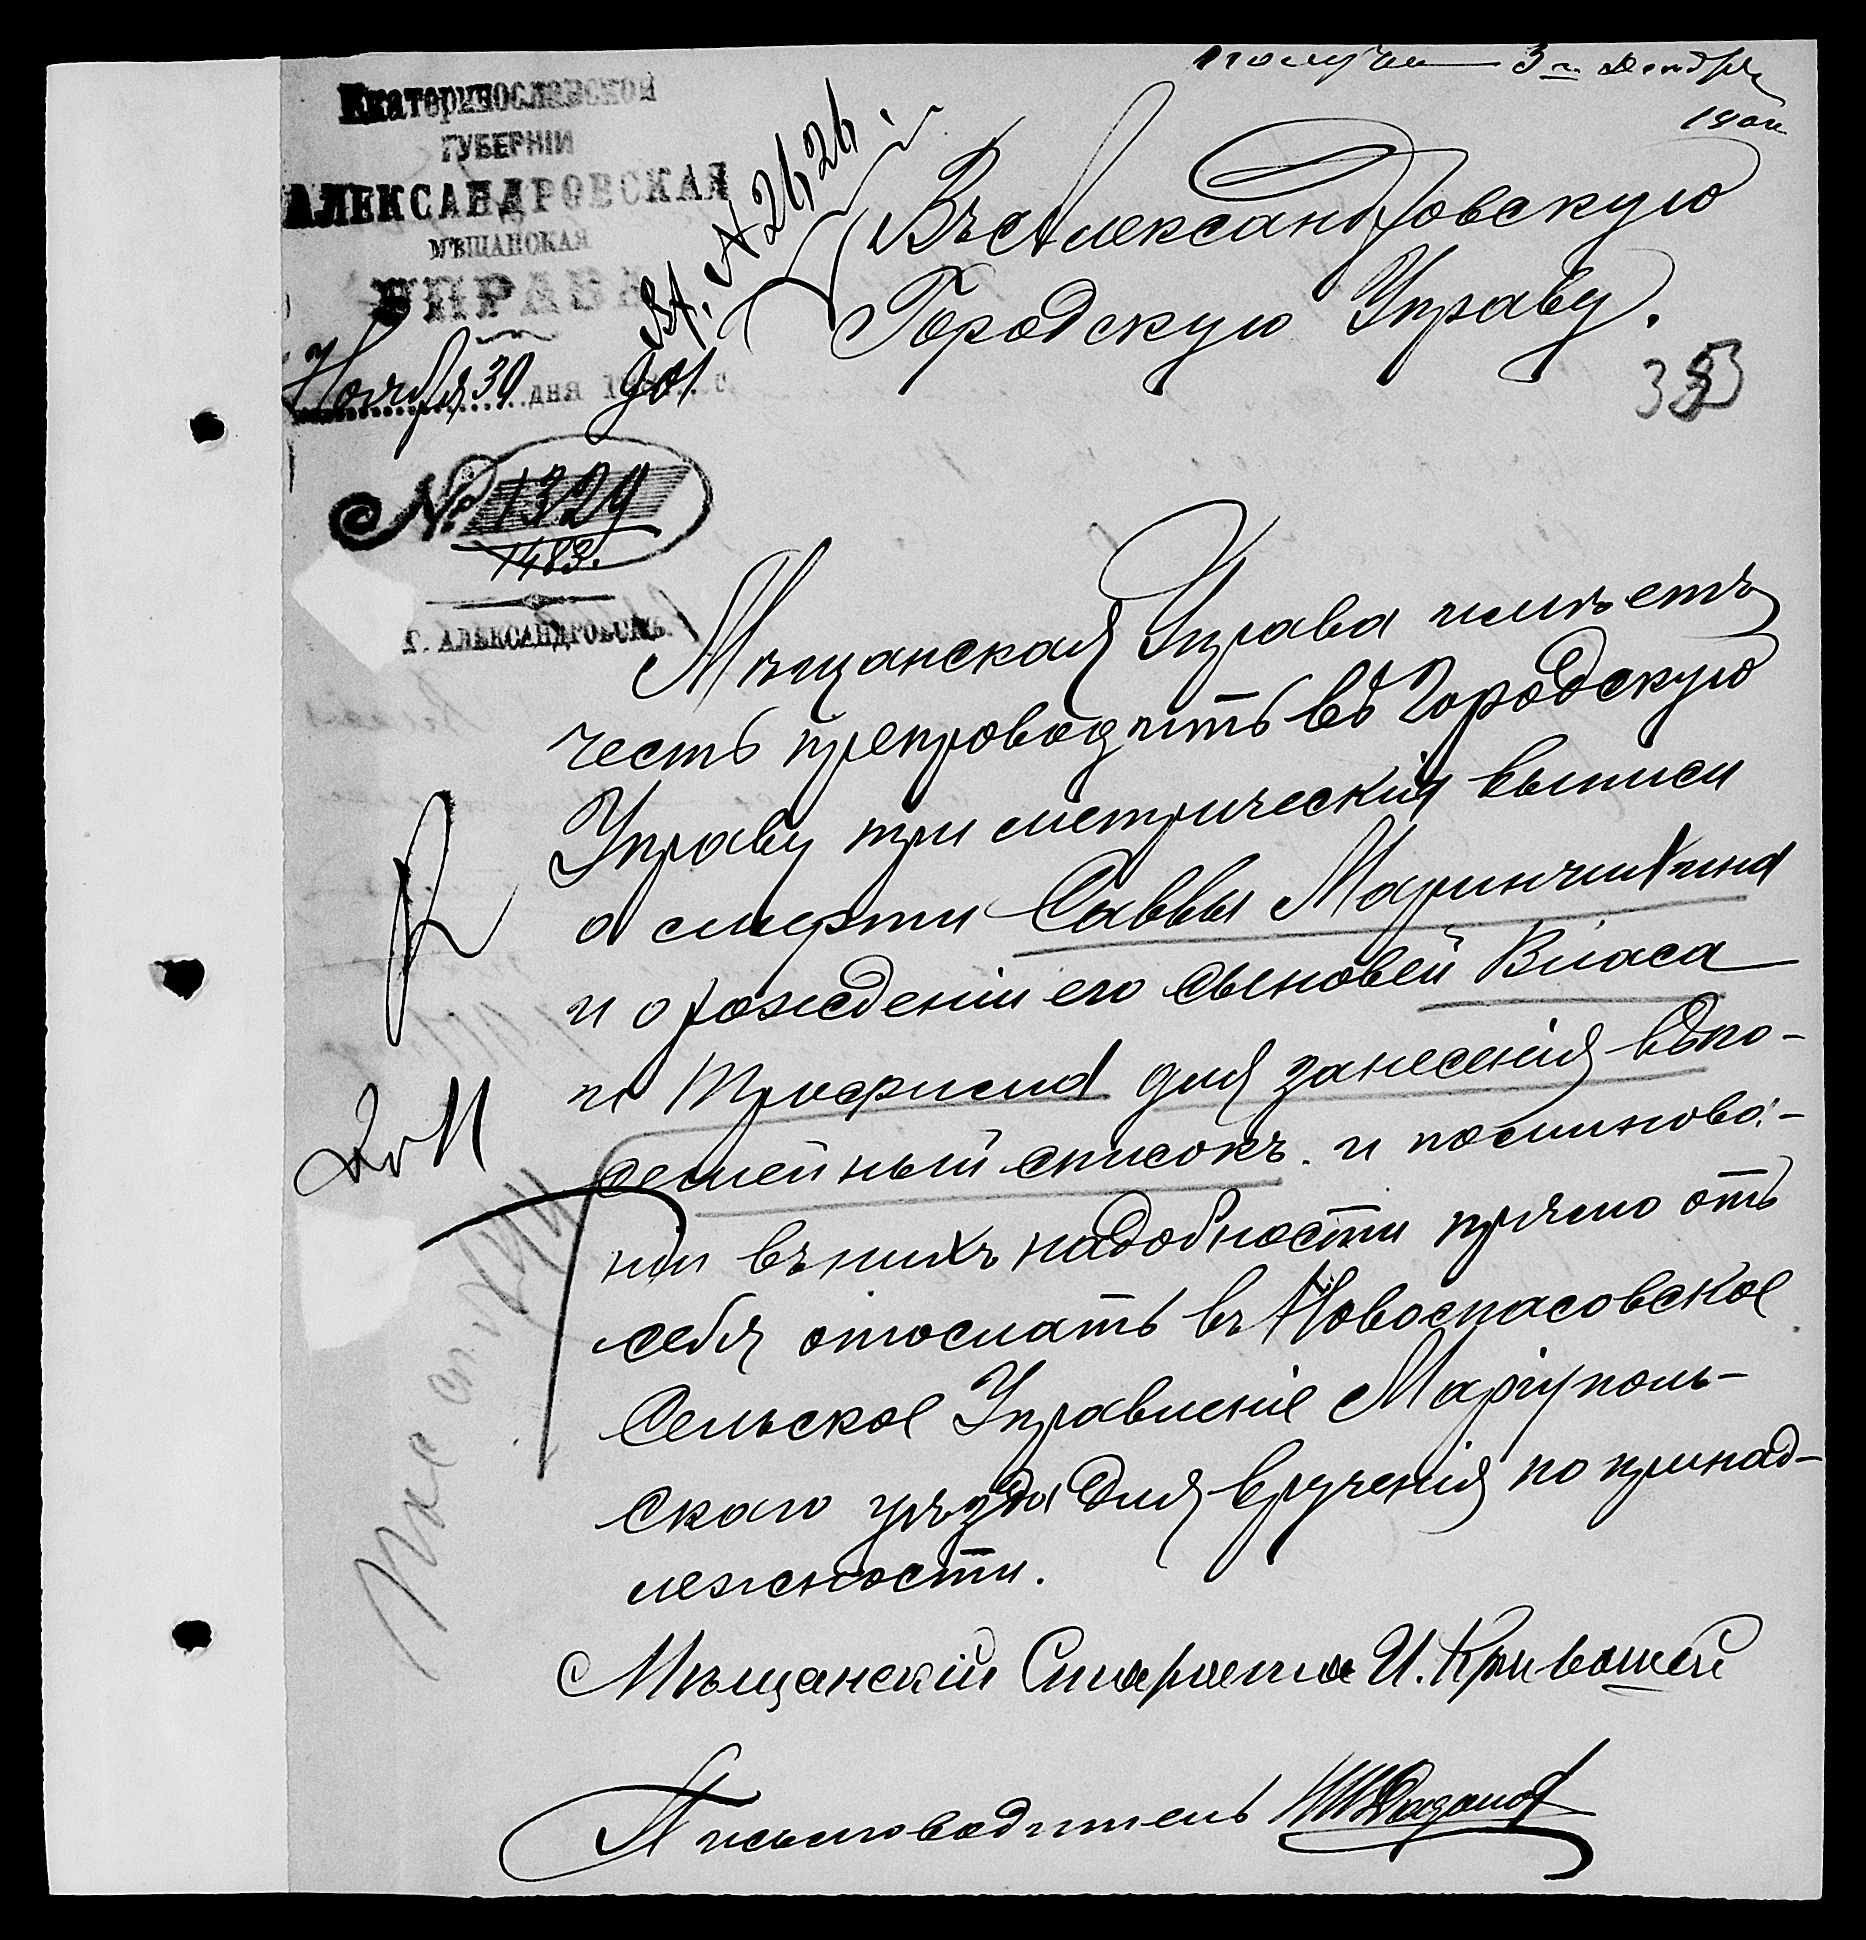 Получена 3го Декабря
1901 г.
Екатеринославской
ГУБЕРНІИ
АЛЕКСАНДРОВСКАЯ
МѢЩАНСКАЯ
УПРАВА
Ноября 30 дня 1901 г.
№ 1329
1483.
Г. АЛЕКСАНДРОВСКЪ.
Въ Александровскую
Городскую Управу.
Мѣщанская Управа имѣетъ
честь препроводить въ Городскую
Управу три метрическія выписи
о смерти Саввы Маринчихина
и о рожденіи его сыновей Власа
и Трофима для занесенія въ по-
семейный списокъ. и по минова-
ніи въ нихъ надобности прямо отъ
себя отослать въ Новоспасовское
Сельское Управленіе Маріуполь-
скаго уѣзда для врученія по принад-
лежности.
Мѣщанскій Староста И. Кривошей
Письмоводитель